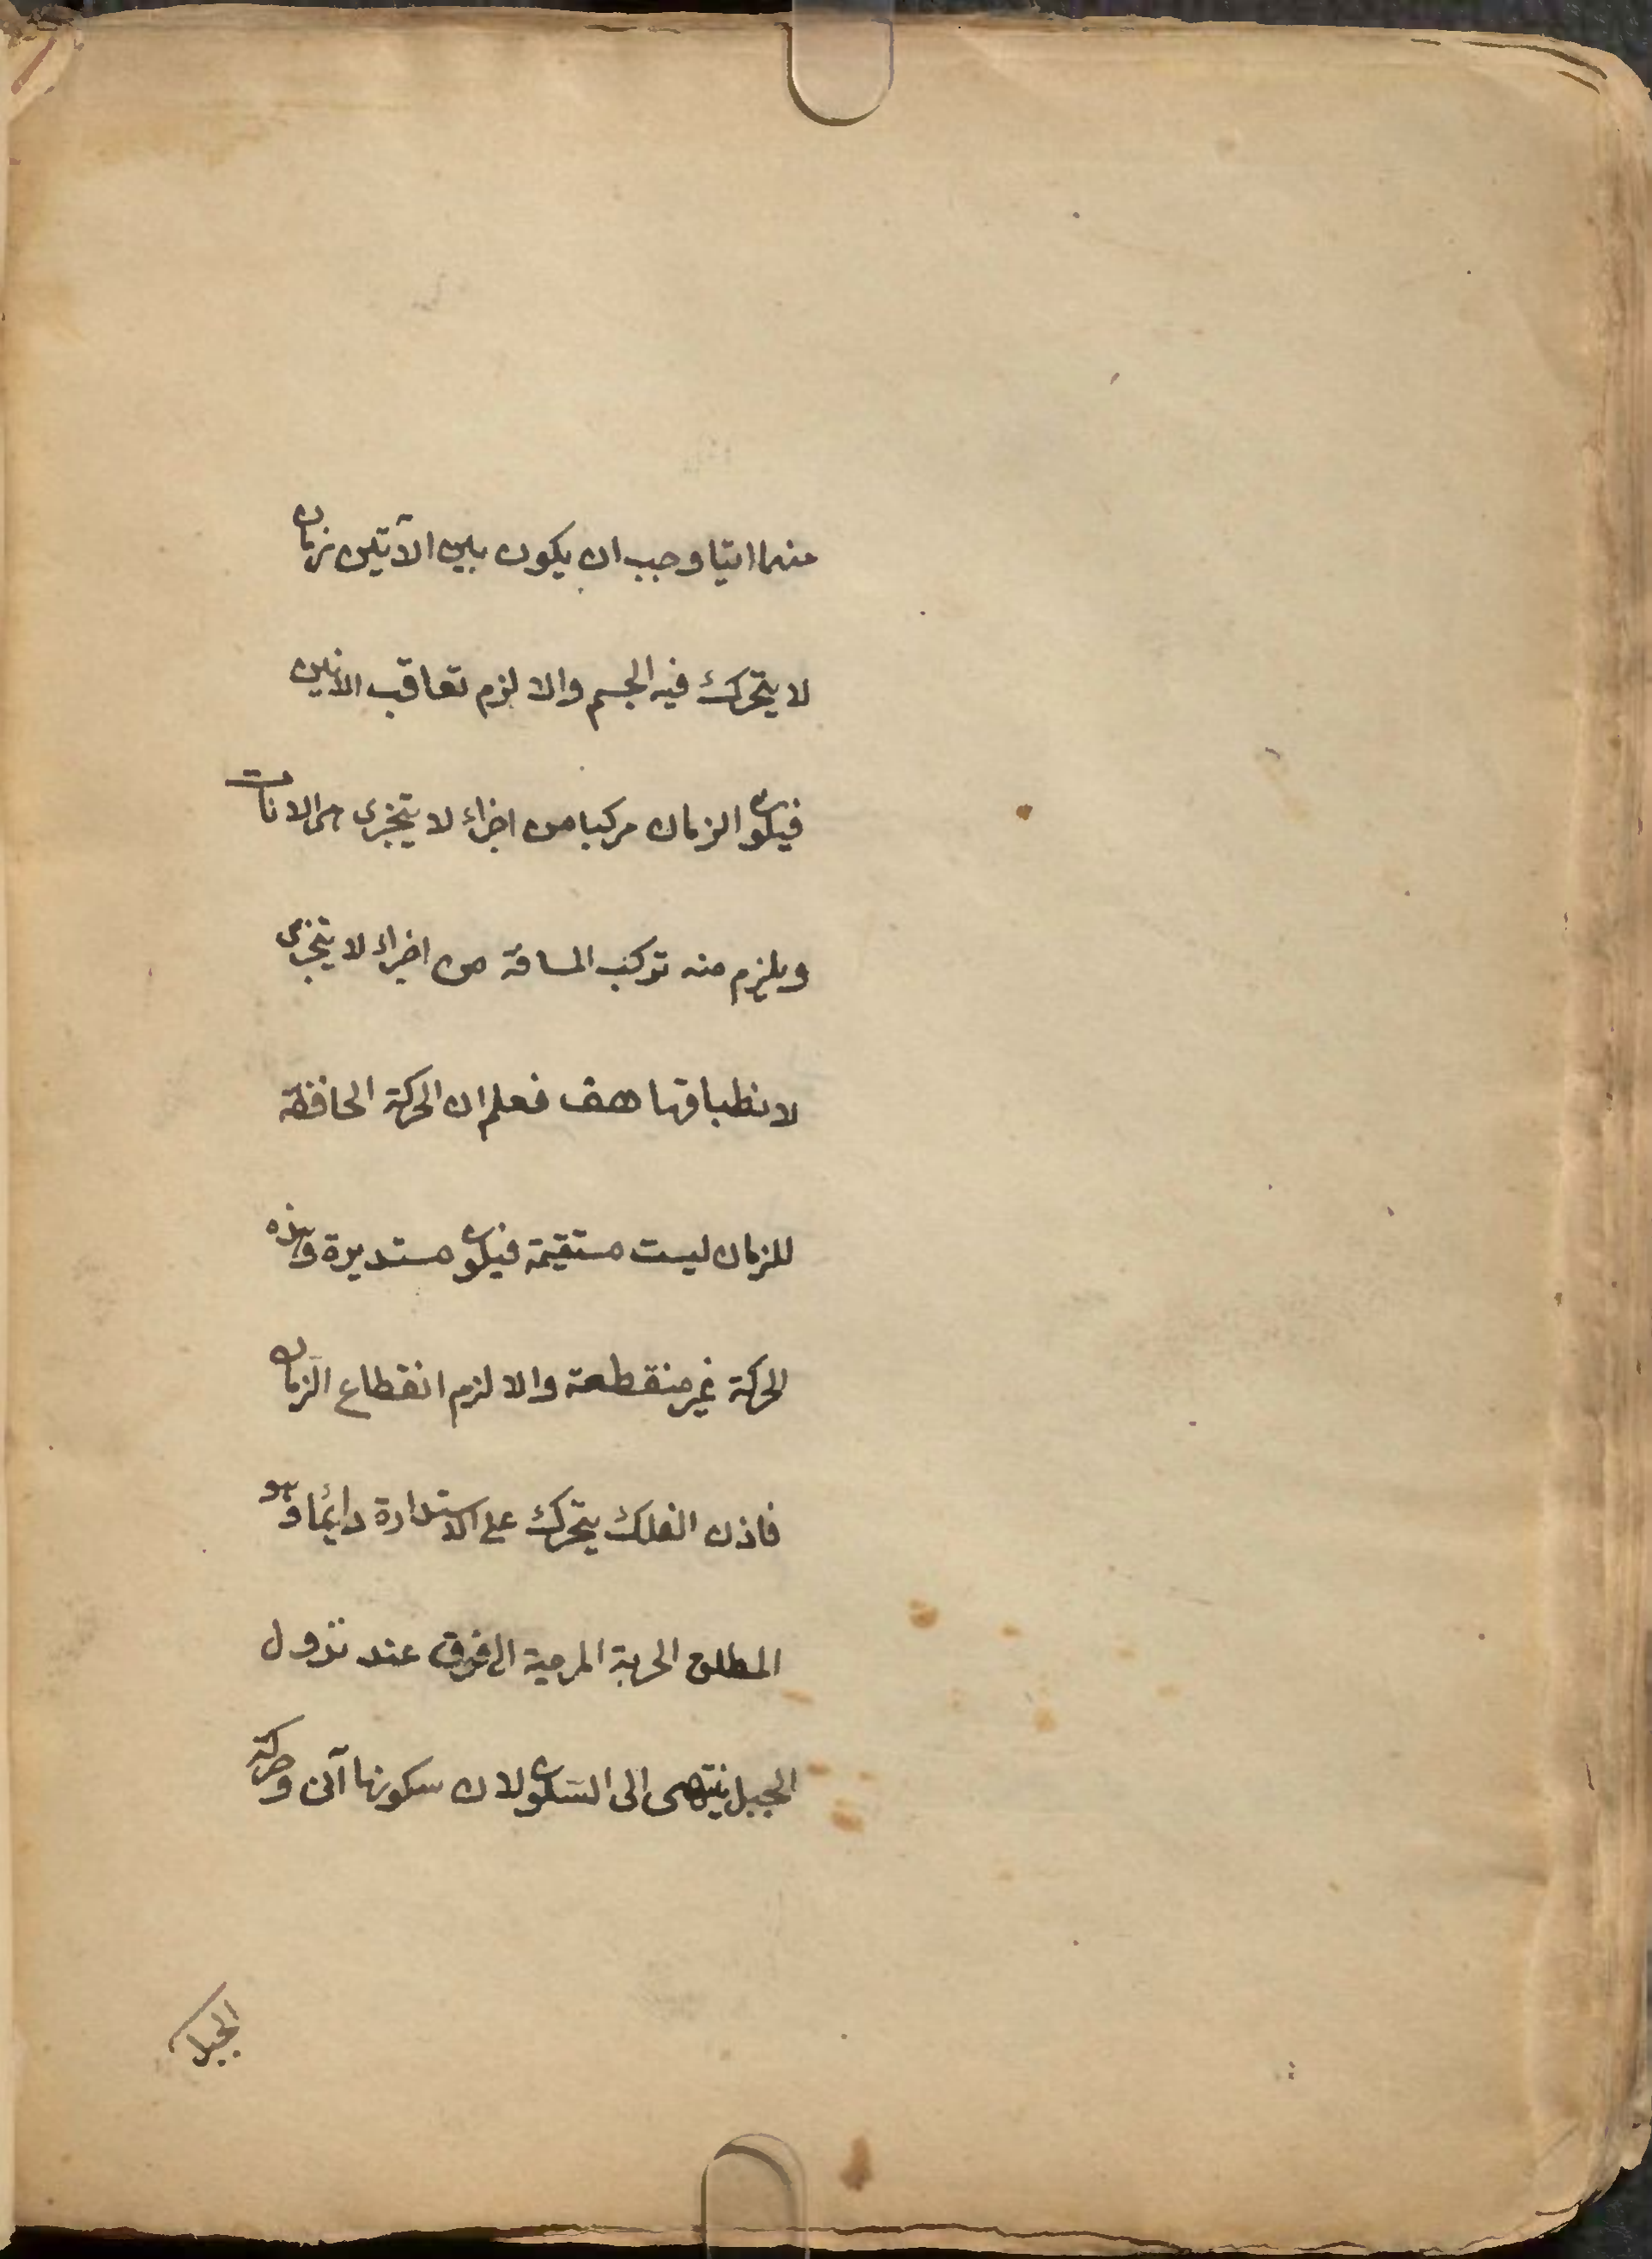 منهما انيا وجب ان يكون بين الآنين زمان
لا يتحرك فيه الجسم والا لزم تعاقب الانين
فيكون الزمان مركبا من اجزاء لا يتجزى هى الانات
ويلزم منه تركب المسافة من اجزاء لا يتجزى
لانطباقها هف فعلم ان الحركة الحافظة
للزمان ليست مستقيمة فيكون مستديرة وهذه
الحركة غير منقطعة والا لزم انقطاع الزمان
فاذن الفلك يتحرك على الاستدارة دايمًا وهو
المطلوب الحبة المرمية الى فوق عند نزول
الجبل ينتهى الى السكون لان سكونها آنى وحركة
الجبل